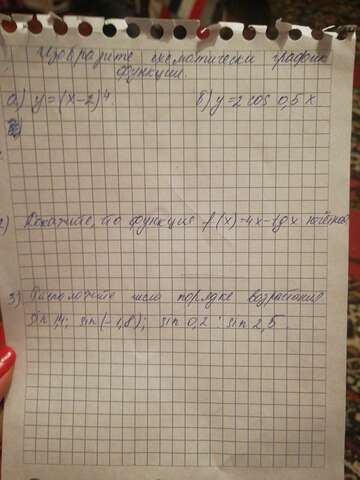 Изобразите схематически график
функции.
а) y=(x-2)⁴
б) y=2 cos 0,5 x
2) Докажите, что функция f(x)=4x-tg x нечётная
3) Расположите числа порядке возрастания
sin 1,4; sin(-1,8); sin 0,2; sin 2,5.